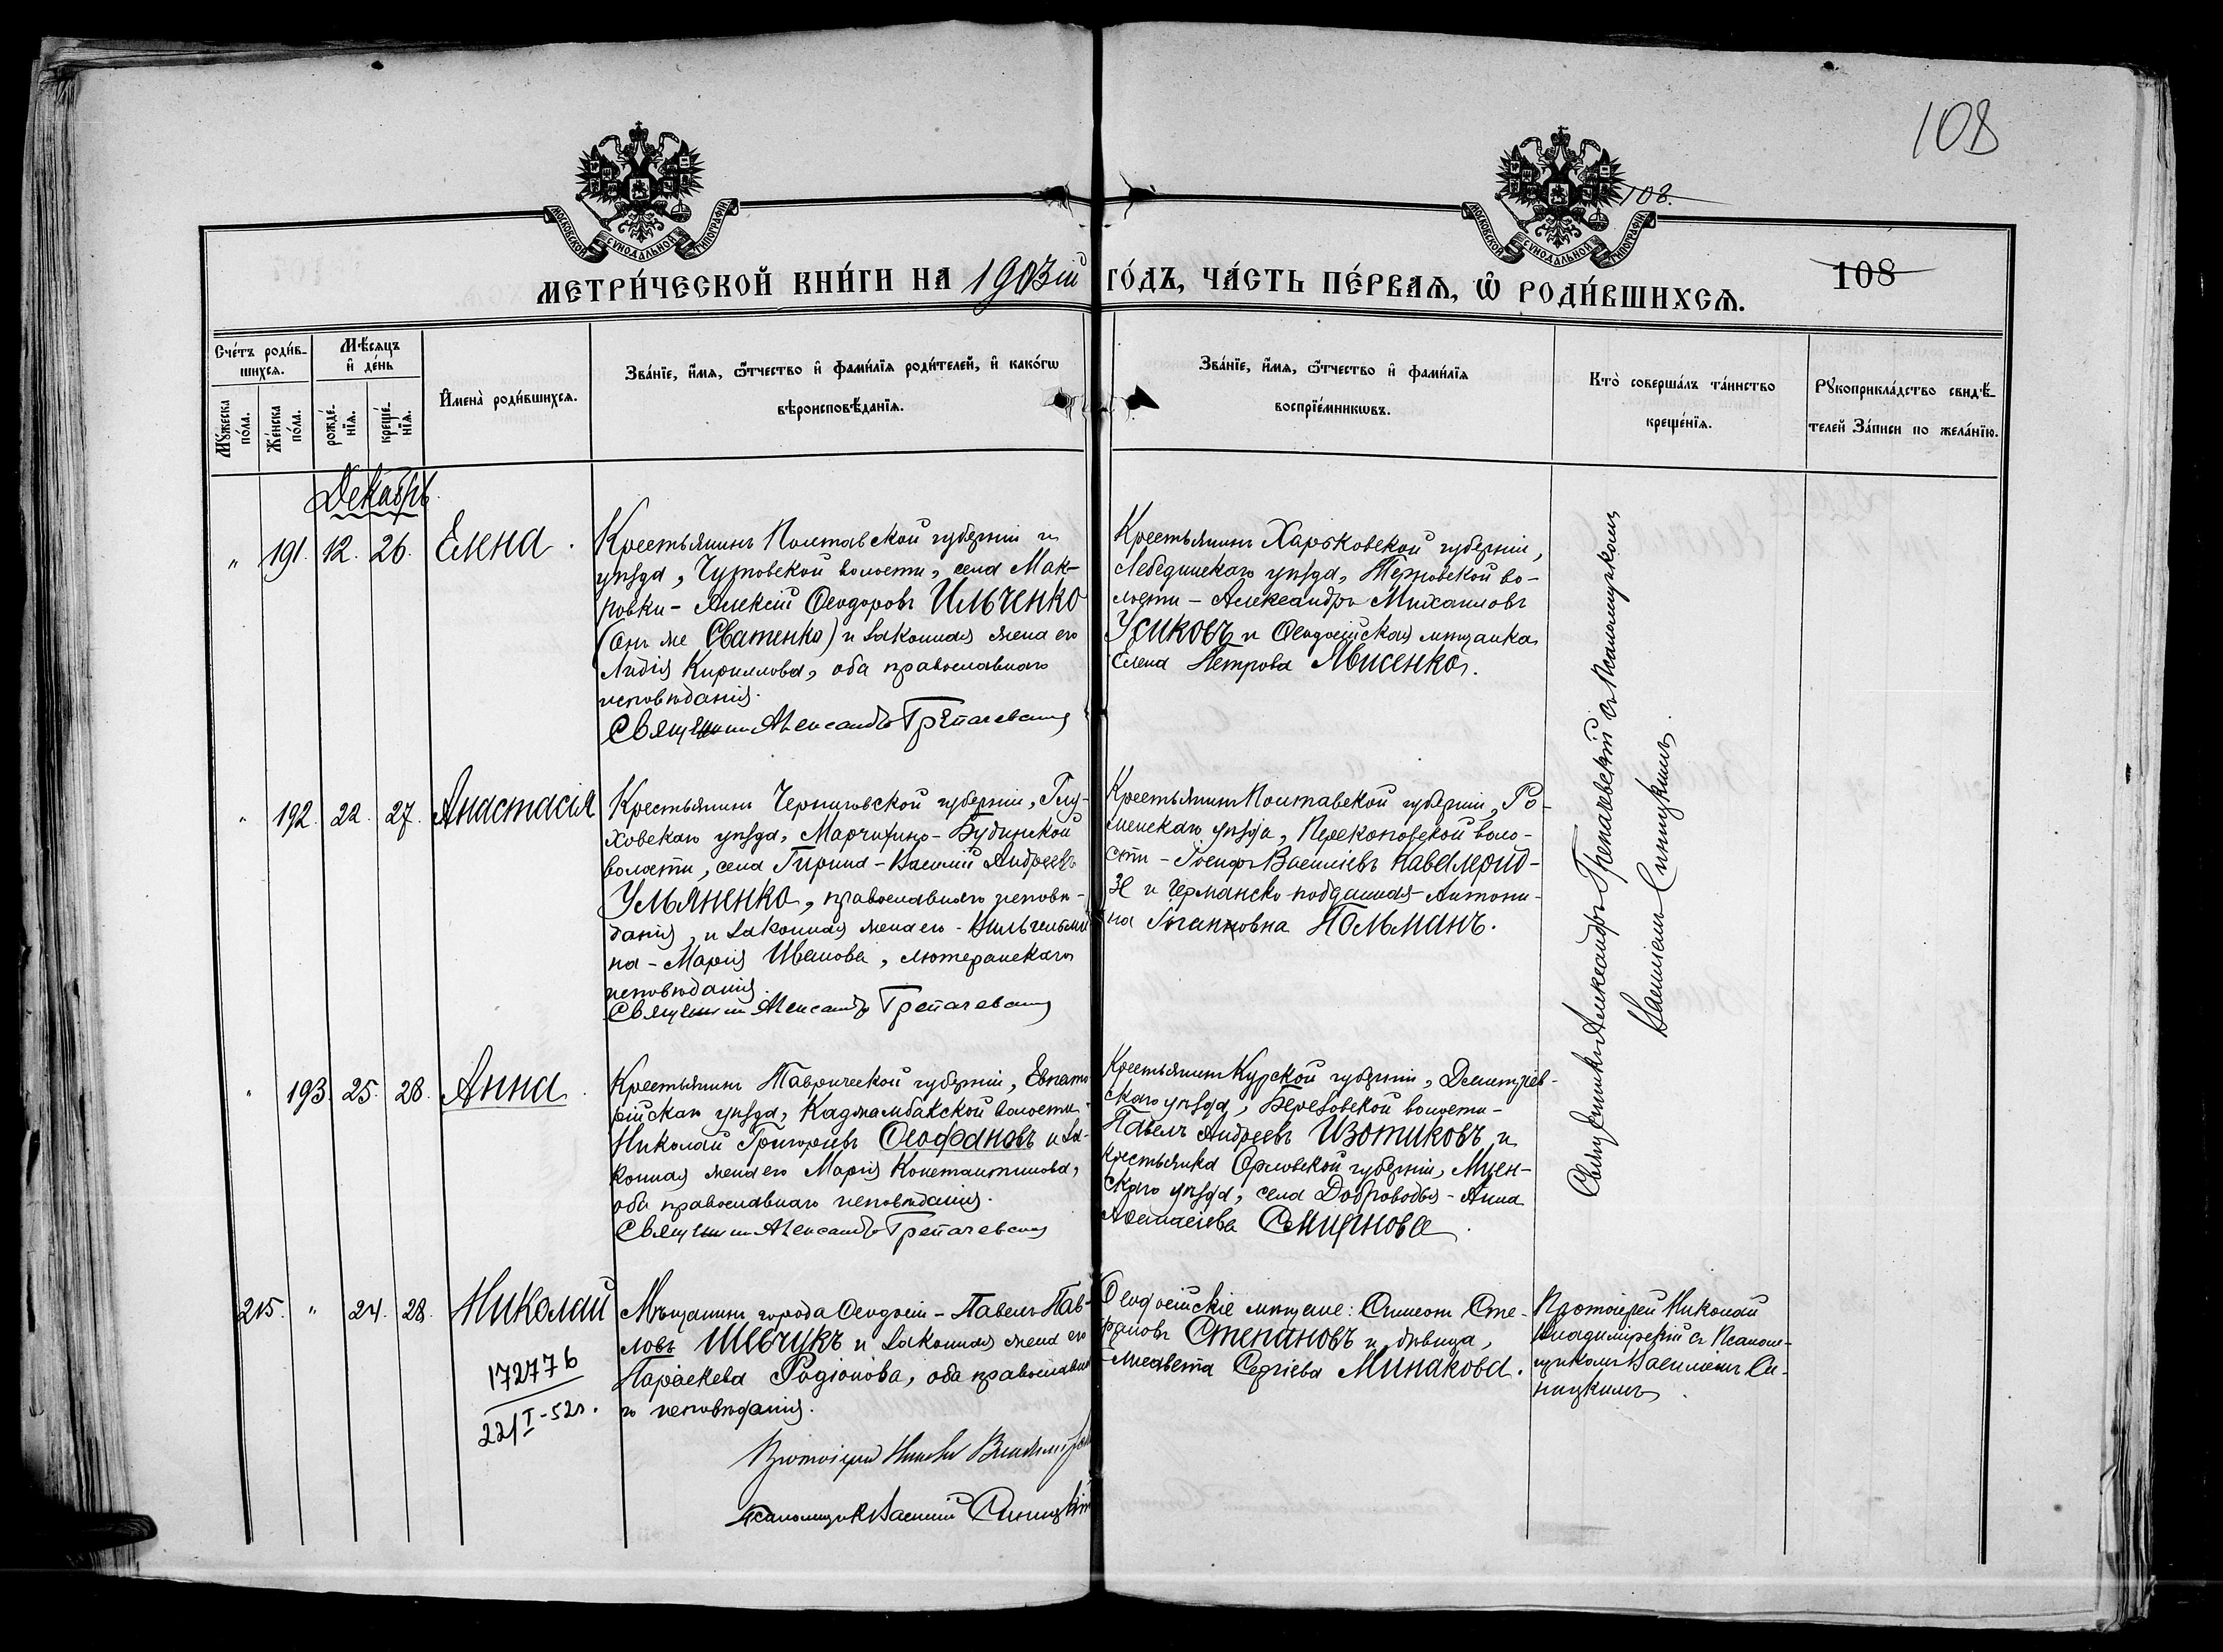 108
108.
МОСКОВСКОЙ СѴНОДАЛЬНОЙ ТИПОГРАФІИ
МОСКОВСКОЙ СѴНОДАЛЬНОЙ ТИПОГРАФІИ
МЕТРИ́ЧЕСКОЙ КНИ́ГИ НА 1903ій ГО́ДЪ, ЧА́СТЬ ПЕ́РВАѦ, Ѡ҆ РОДИ́ВШИХСѦ.
108
Сче́тъ роди́в-
шихсѧ.
Мꙋ́жеска по́ла.
Же́нска по́ла.
Мѣ́сѧцъ и҆ де́нь
рожде́-нїѧ.
креще́-нїѧ.
И҆мена̀ роди́вшихсѧ.
Зва́нїе, и҆́мѧ, ѻ҆́тчество и҆ фами́лїѧ роди́телей, и҆ како́гѡ
вѣроисповѣ́данїѧ.
Зва́нїе, и҆́мѧ, ѻ҆́тчество и҆ фами́лїѧ
воспрїе́мникѡвъ.
Кто̀ соверша́лъ та́инство
креще́нїѧ.
Рꙋкоприкла́дство свидѣ́-
телей за́писи по жела́нїю.
Декабрь
" 191. 12. 26. Елена.
Крестьянинъ Полтавской губерніи и
уѣзда, Чутовской волости, села Мак-
ровки - Алексій Ѳеодоровъ Ильченко
(онъ же Сватенко) и законная жена его
Лидія Кириллова, оба православнаго
исповѣданія.
Священникъ Александръ Трепачевскій
Крестьянинъ Харьковской губерніи,
Лебединскаго уѣзда, Терновской во-
лости - Александръ Михаиловъ
Усиковъ и Ѳеодосійская мѣщанка
Елена Петрова Лысенко.
Священникъ Александръ Трепачевскій съ псаломщикомъ
Василіемъ Синицкимъ.
" 192. 22. 27. Анастасія
Крестьянинъ Черниговской губерніи, Глу-
ховскаго уѣзда, Марчихино-Будинской
волости, села Гирина - Василій Андреевъ
Ульяненко, православнаго исповѣ-
данія, и законная жена его - Вильгельми
на-Марія Иванова, лютеранскаго
исповѣданія.
Священникъ Александръ Трепачевскій
Крестьянинъ Полтавской губерніи, Ро-
менскаго уѣзда, Перекоповской воло-
сти - Іосифъ Василіевъ
и Германско подданная - Антони-
на Польманъ.
" 193. 25. 28. Анна.
Крестьянинъ Таврической губерніи, Евпато
рійскаго уѣзда, Каджамбакской волости
Николай Григоріевъ Ѳеофановъ и за-
конная жена его Марія Константинова,
оба православнаго исповѣданія.
Священникъ Александръ Трепачевскій
Крестьянинъ Курской губерніи, Дмитріев-
скаго уѣзда, Березовской волости -
Павелъ Андреевъ Изотиковъ и
крестьянка Орловской губерніи, Мцен-
скаго уѣзда, села Доброводья - Анна
Аѳанасіева
215. " 24. 28. Николай
172776
22/I-52г.
Мѣщанинъ города Ѳеодосіи - Павелъ Пав-
ловъ Шевчукъ и законная жена его
Параскева Родіонова, оба православна
го исповѣданія.
Протоіерей Николай Владимірскій
Псаломщикъ Василій Синицкій
Ѳеодосійскіе мѣщане: Симеонъ Сте-
фановъ Степановъ и дѣвица,
Елисавета Сергіева Минакова.
Протоіерей Николай
Владимірскій съ псалом-
щикомъ Василіемъ Си-
ницкимъ.